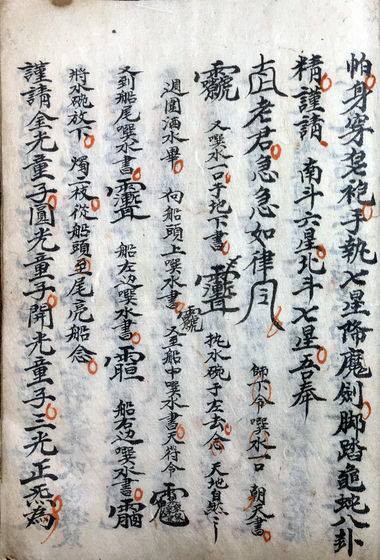 帕身穿皂袍手執七星降魔劍脚踏龜蛇八卦
精謹請 南斗六星北斗七星吾奉
老君急急如律 師下令噀水一口 朝天書
又噀水一口于地下書 挑水碗于左去念 天地自然〻
週圍洒水畢 向船頭上噀水書 又至船中噀水書天符令
又到船尾噀水書 船左边噀水書 船右边噀水書
將水碗放下 燭一枝從船頭至尾虎船念
謹請金光童子圓光童子開光童子三光正炁為